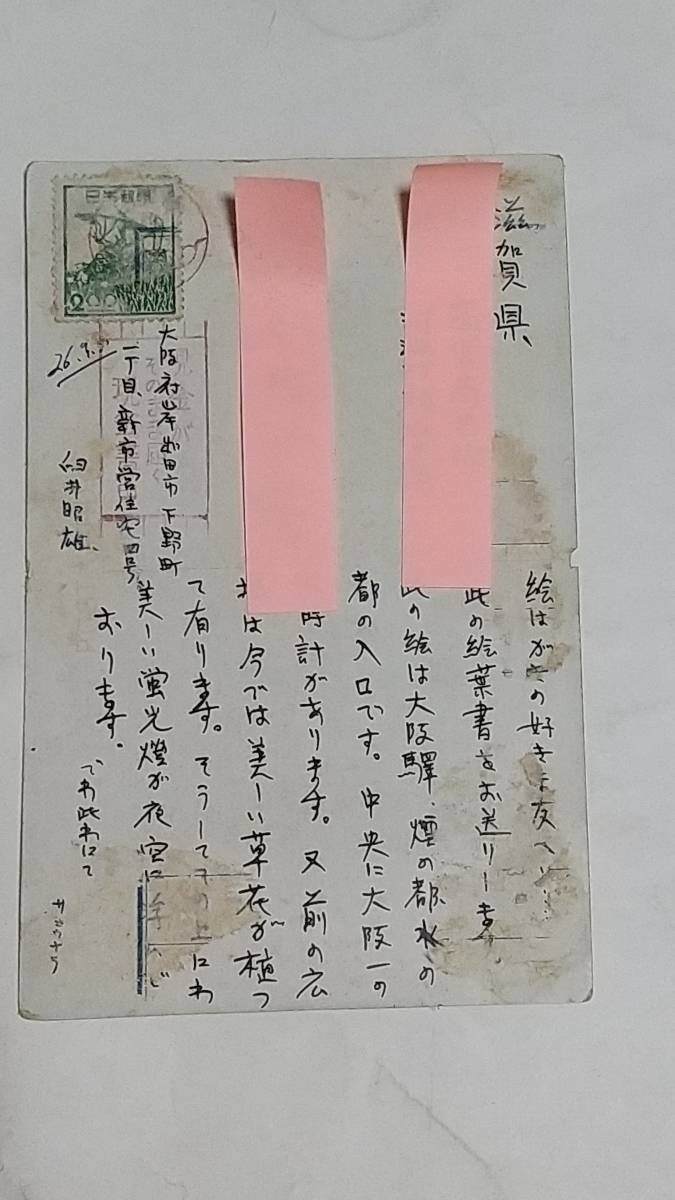 滋賀県
絵はがきの好きな友へ…
此の絵葉書をお送りしま
此の絵は大阪驛、煙の都、水の
都の入口です。中央に大阪一の
時計があります。又前の広
は今では美しい草花が植つ
て有ります。そうしてその上にわ
美しい蛍光燈が夜空に
おります。
でわ此れにて
サヨウナラ
大阪府岸和田市下野町
一丁目、新市営住宅四号
臼井昭雄、
26.
日本郵便
200